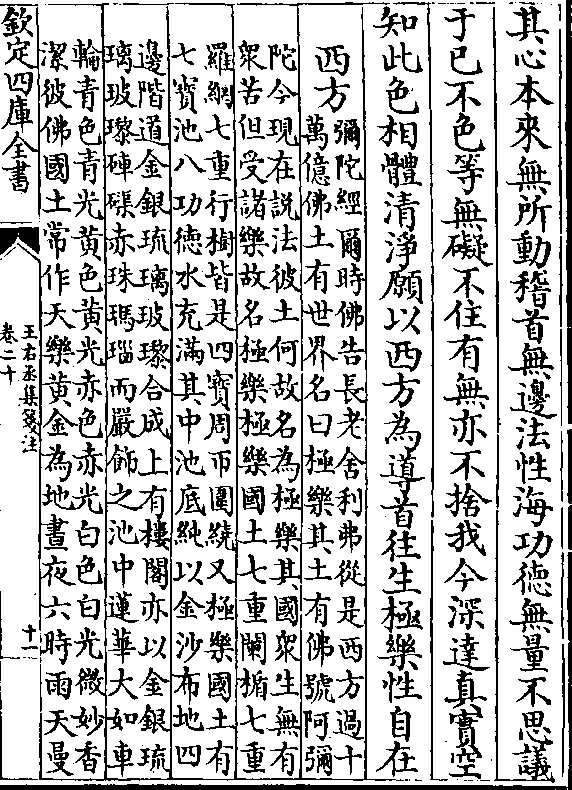 其心本來無所動稽首無邊法性海功德無量不思議
于已不色等無礙不住有無亦不捨我今深達真實空
知此色相體清淨願以西方為導首往生極樂性自在
西方
彌陀經爾時佛告長老舍利弗從是西方過十
萬億佛土有世界名曰極樂其土有佛號阿彌
陀今現在説法彼土何故名為極樂其國衆生無有
衆苦但受諸樂故名極樂極樂國土七重闌楯七重
羅網七重行樹皆是四寶周帀圍繞又極樂國土有
七寶池八功德水充滿其中池底純以金沙布地四
邊階道金銀琉璃玻瓈合成上有樓閣亦以金銀琉
璃玻瓈硨磲赤珠瑪瑙而嚴飾之池中蓮華大如車
輪青色青光黄色黄光赤色赤光白色白光微妙香
潔彼佛國土常作天樂黄金為地晝夜六時雨天曼
欽定四庫全書
王右丞集箋注
卷二十
十一